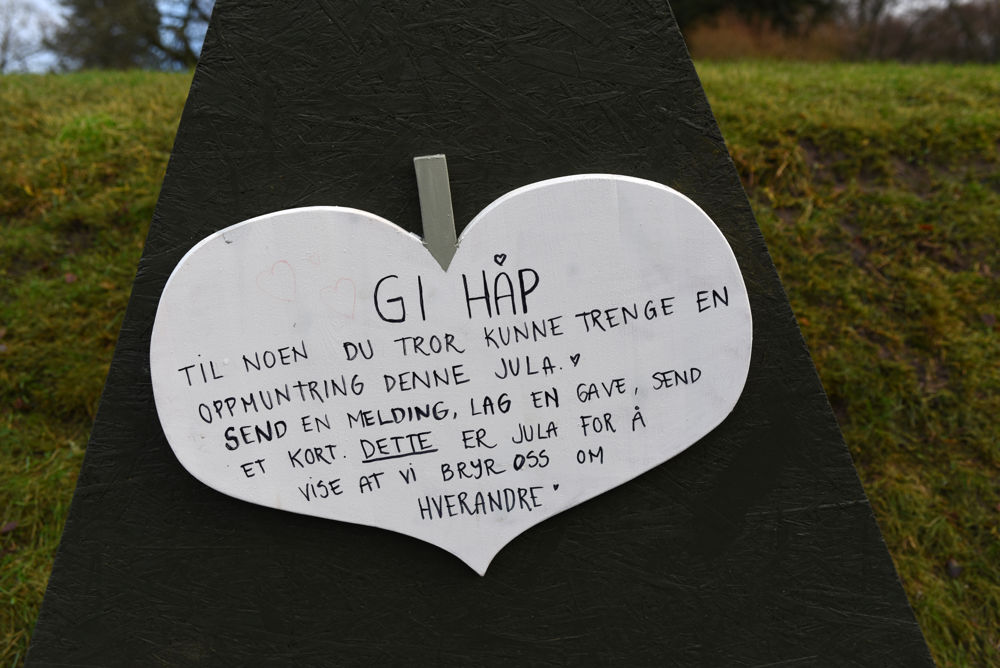 GI HÅP
TIL NOEN DU TROR KUNNE TRENGE EN
OPPMUNTRING DENNE JULA.
SEND EN MELDING, LAG EN GAVE, SEND
ET KORT. DETTE ER JULA FOR Å
VISE AT VI BRYR OSS OM
HVERANDRE